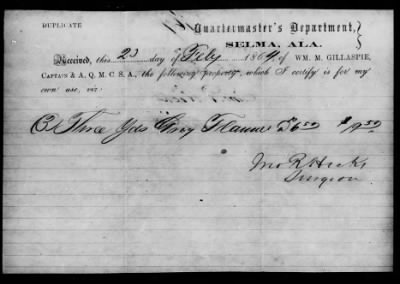 DUPLICATE
Quartermaster's Department,
SELMA, ALA.
Received, this 23 day of Feby 1864, of WM. M. GILLASPIE,
CAPTAIN & A. Q. M. C. S. A., the following property, which I certify is for my
own use, viz:
(3) Three Yds Gray Flannel $6.50 $19.50
Jno R Hicks
Surgeon